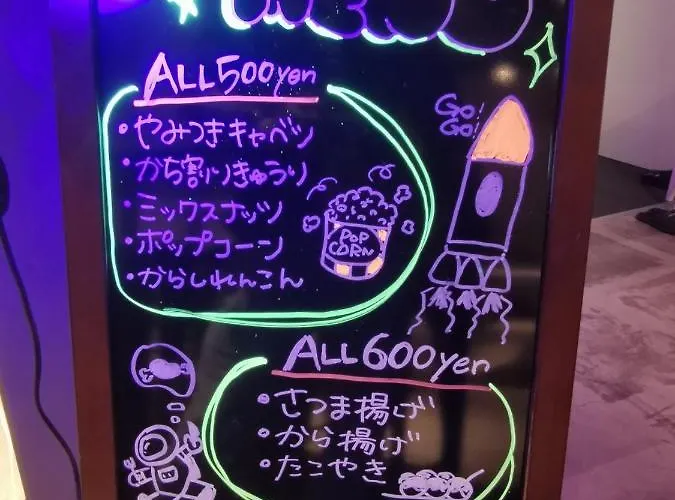 ALL500yen
・やみつきキャベツ
・かち割りきゅうり
・ミックスナッツ
・ポップコーン
・からしれんこん
POP
CORN
GO!
GO!
ALL600yen
・さつま揚げ
・から揚げ
・たこやき